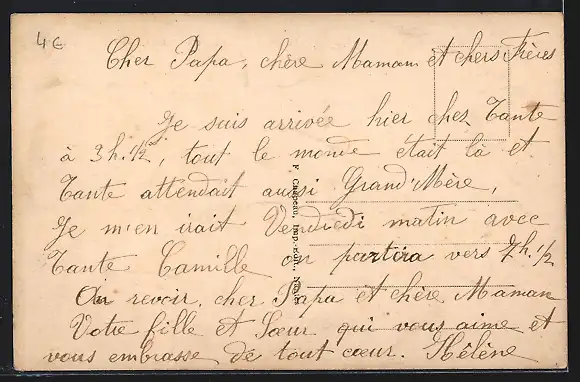 4€
Cher Papa, chère Maman et chers Frères
Je suis arrivée hier chez Tante
à 3h.1/2, tout le monde était là et
Tante attendait aussi Grand'Mère,
Je m'en irait Vendredi matin avec
Tante Camille on partira vers 7h.1/2
Au revoir, cher Papa et chère Maman
Votre fille et Sœur qui vous aime et
vous embrasse de tout cœur. Hélène